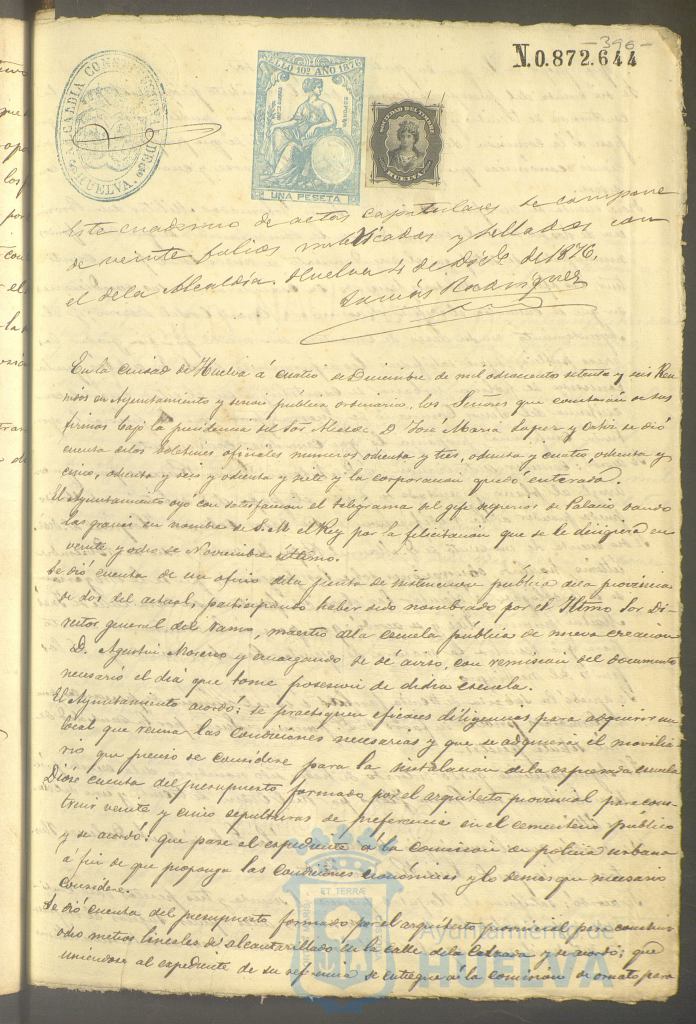 -396-
N.0.872.644
ALCALDIA CONSTITUCIONAL DE HUELVA
SELLO 10º AÑO 1876
UNA PESETA
SOCIEDAD DEL TIMBRE
HUELVA
Este cuaderno de actas capitulares se compone
de veinte folios rubricados y sellados con
el de la Alcaldía. Huelva 4 de Dice. de 1876.
Rodriguez
En la ciudad de Huelva á cuatro de Diciembre de mil ochocientos setenta y seis Reu
nidos en Ayuntamiento y sesion pública ordinaria, los Señores que constarán de sus
firmas bajo la presidencia del Sor Alcalde, D. José Maria Lopez y Ortiz se dió
cuenta delos boletines oficiales numeros ochenta y tres, ochenta y cuatro, ochenta y
cinco, ochenta y seis y ochenta y siete y la corporacion quedó enterada.
El Ayuntamiento oyó con satisfaccion el telégrama del gefe superior de Palacio dando
las gracias en nombre de S. M. el Rey por la felicitacion que se le dirigiera en
veinte y ocho de Noviembre último.
Se dió cuenta de un oficio dela junta de instruccion pública dela provincia
de dos del actual, participando haber sido nombrado por el Iltmo Sor Di
rector general del ramo, maestro dela escuela pública de nueva creacion
D. Agustin Moreno y encargando se dé aviso, con remision del documento
necesario el dia que tome posesion de dicha escuela.
El Ayuntamiento acordó: se practiquen eficaces diligencias para adquirir un
local que reuna las condiciones necesarias y que se adquiera el movilia
rio que preciso se considere para la instalacion dela espresada escuela
Dióse cuenta del presupuesto formado por el arquitecto provincial para cons
truir veinte y cinco sepulturas de preferencia en el cementerio público
y se acordó: que pase el expediente á la comision de policia urbana
á fin de que proponga las condiciones económicas y lo demas que necesario
considere.
Se dió cuenta del presupuesto formado por el arquitecto provincial para construir
ocho metros lineales de alcantarillado en la calle dela Calzada y se acordó: que
uniendose al expediente de su referencia se entregue á la comision de ornato para
ET TERRÆ
HUELVA